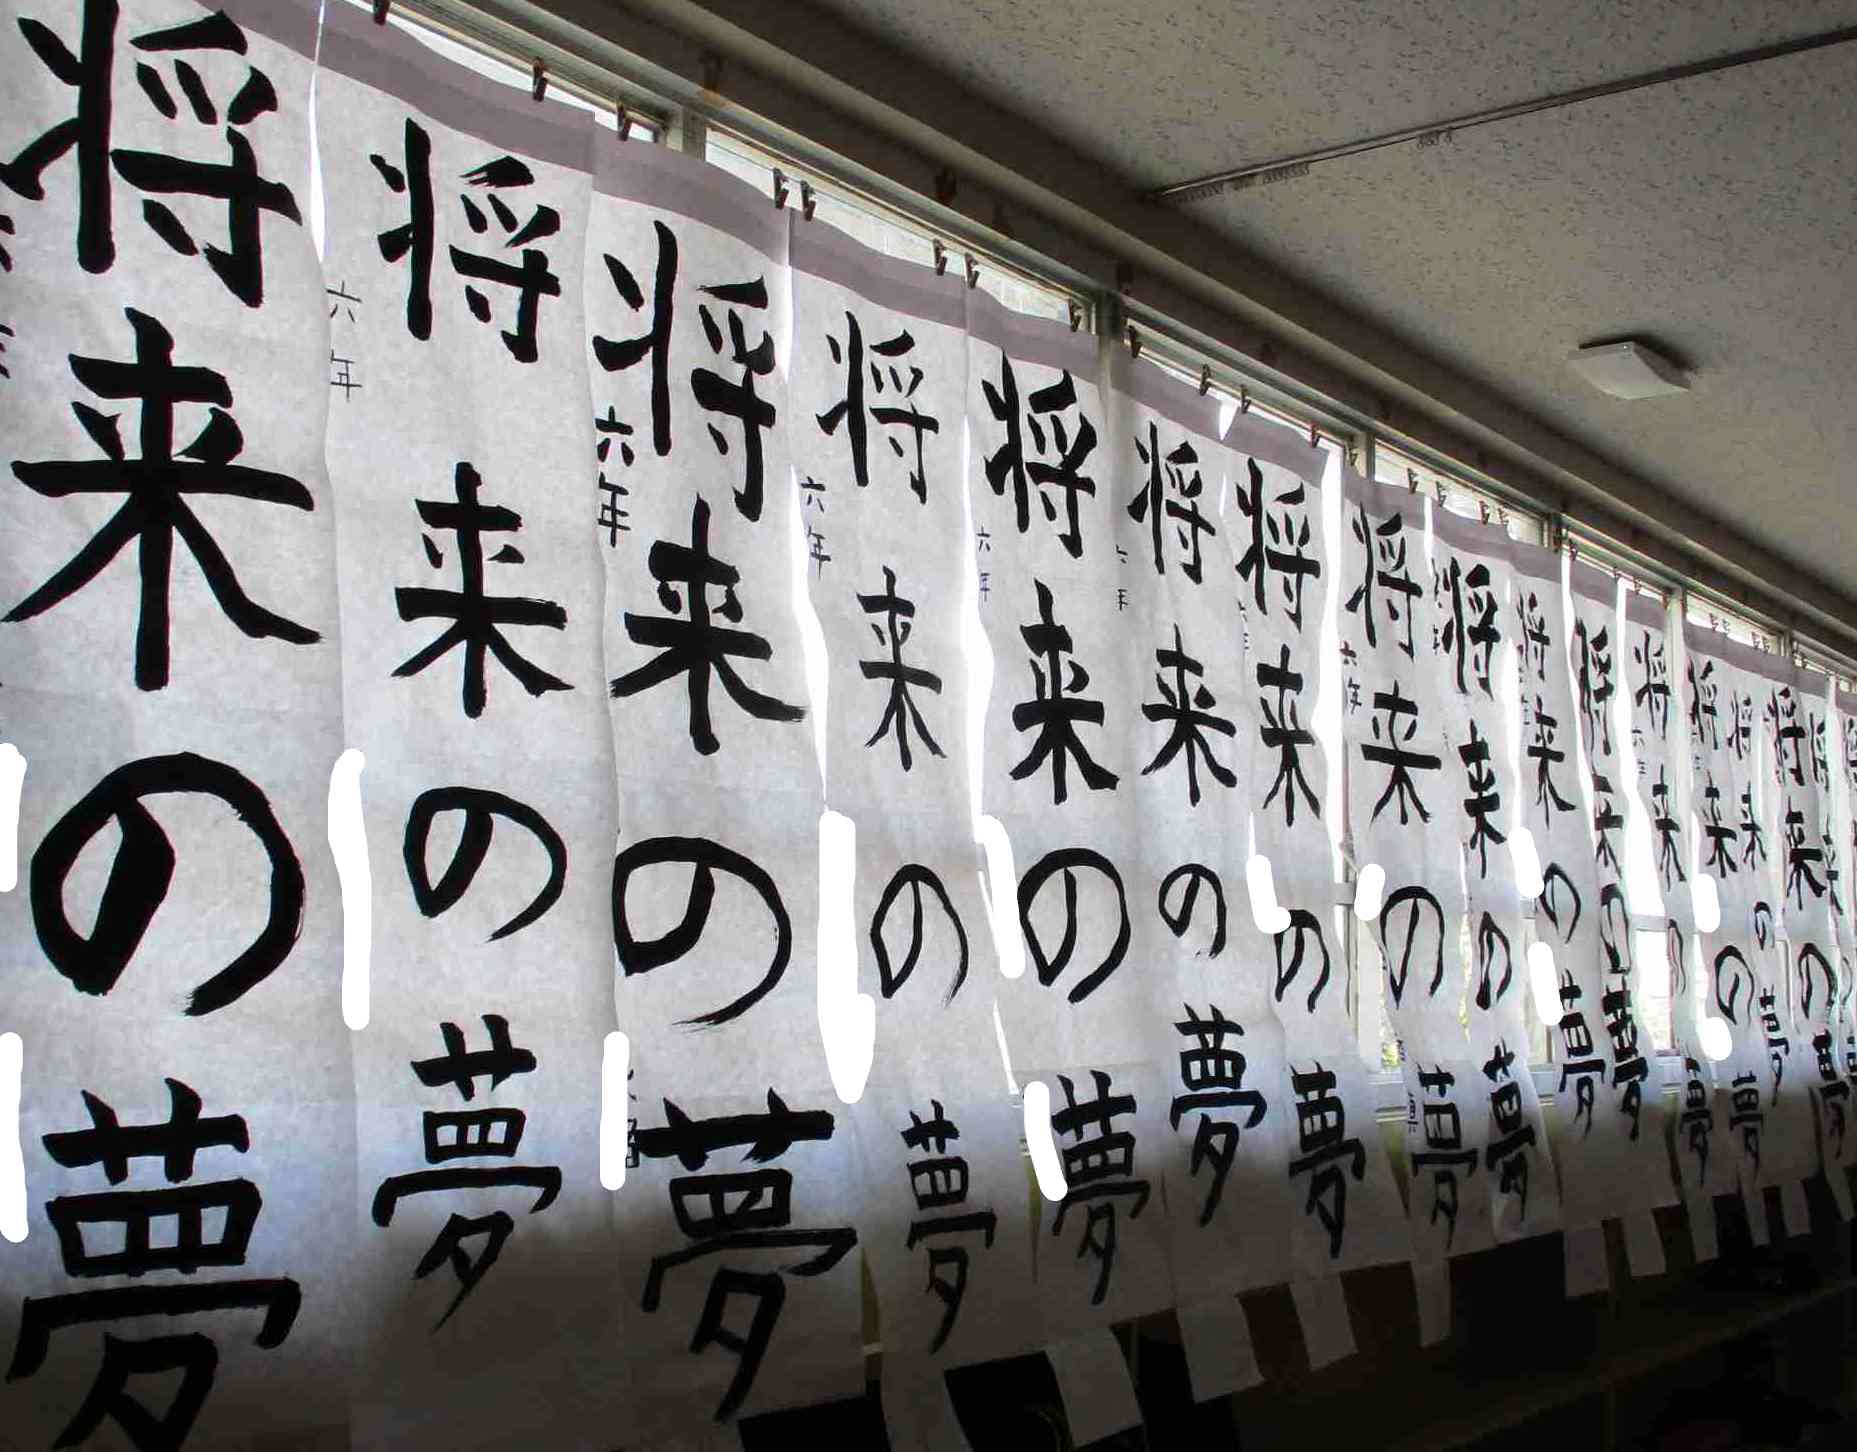 将来の夢
六年
将来の夢
六年
将来の夢
六年
将来の夢
六年
将来の夢
六年
将来の夢
将来の夢
六年
将来の夢
将来の夢
将来の夢
将来の夢
将来の夢
将来の夢
将来の夢
将来の夢